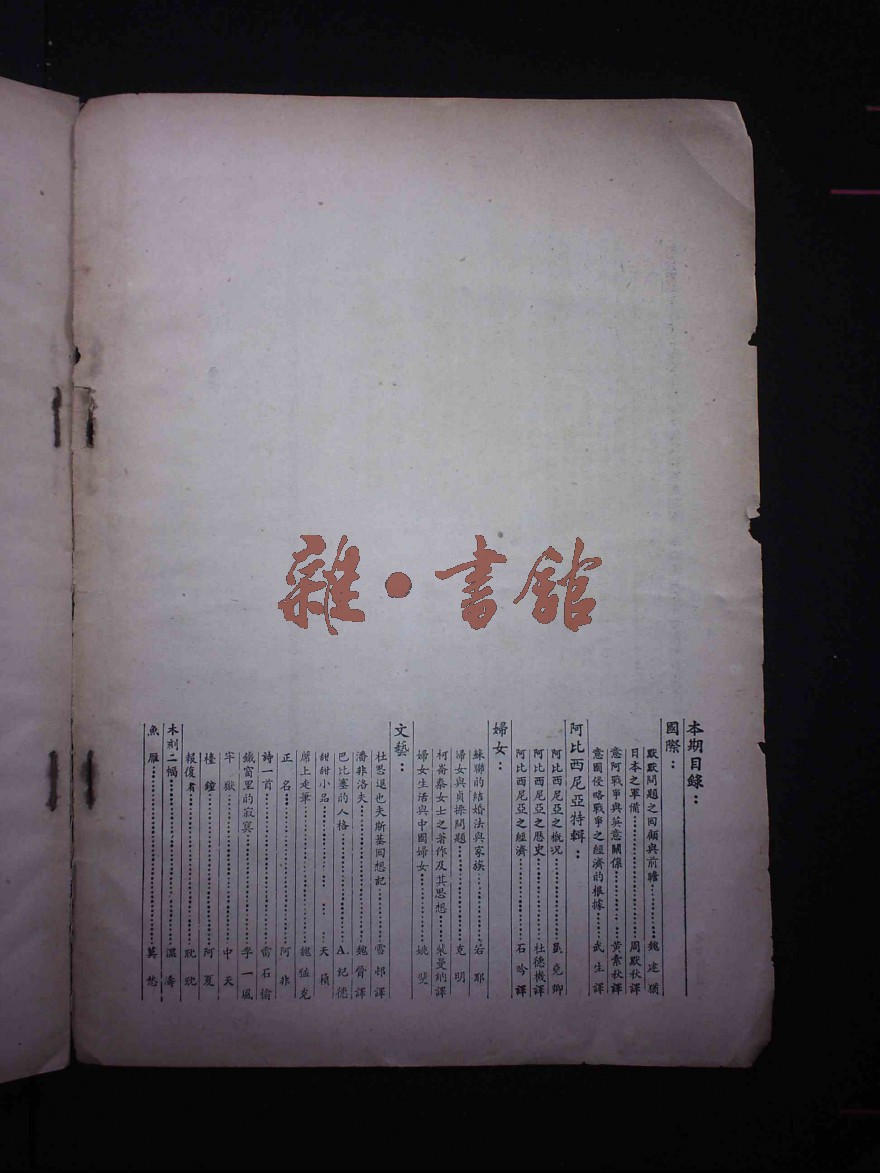 雜・書館
本期目錄：
國際：
默默問題之回顧與前瞻………魏建猶
日本之軍備………周默秋譯
意阿戰爭與英意關係………黃素秋譯
意國侵略戰爭之經濟的根據………武生譯
阿比西尼亞特輯：
阿比西尼亞之概況………卿
阿比西尼亞之歷史………杜德機譯
阿比西尼亞之經濟………石吟譯
婦女：
蘇聯的結婚法與家族………若耶
婦女與貞操問題………克明
柯崙泰女士之著作及其思想………裴曼納譯
婦女生活與中國婦女………姚斐
文藝：
杜思退也夫斯基回想記………雪邨譯
潘非洛夫………魏晉譯
巴比塞的人格………A.紀德
甜甜小品………天積
蓆上走筆………魏猛克
正名………阿非
詩一首………雷石榆
鐵窗里的寂寞………李一風
牢獄………中天
樓鐘………阿夏
報復者………耽耽
木刻二幅………溫濤
魚雁………莫愁